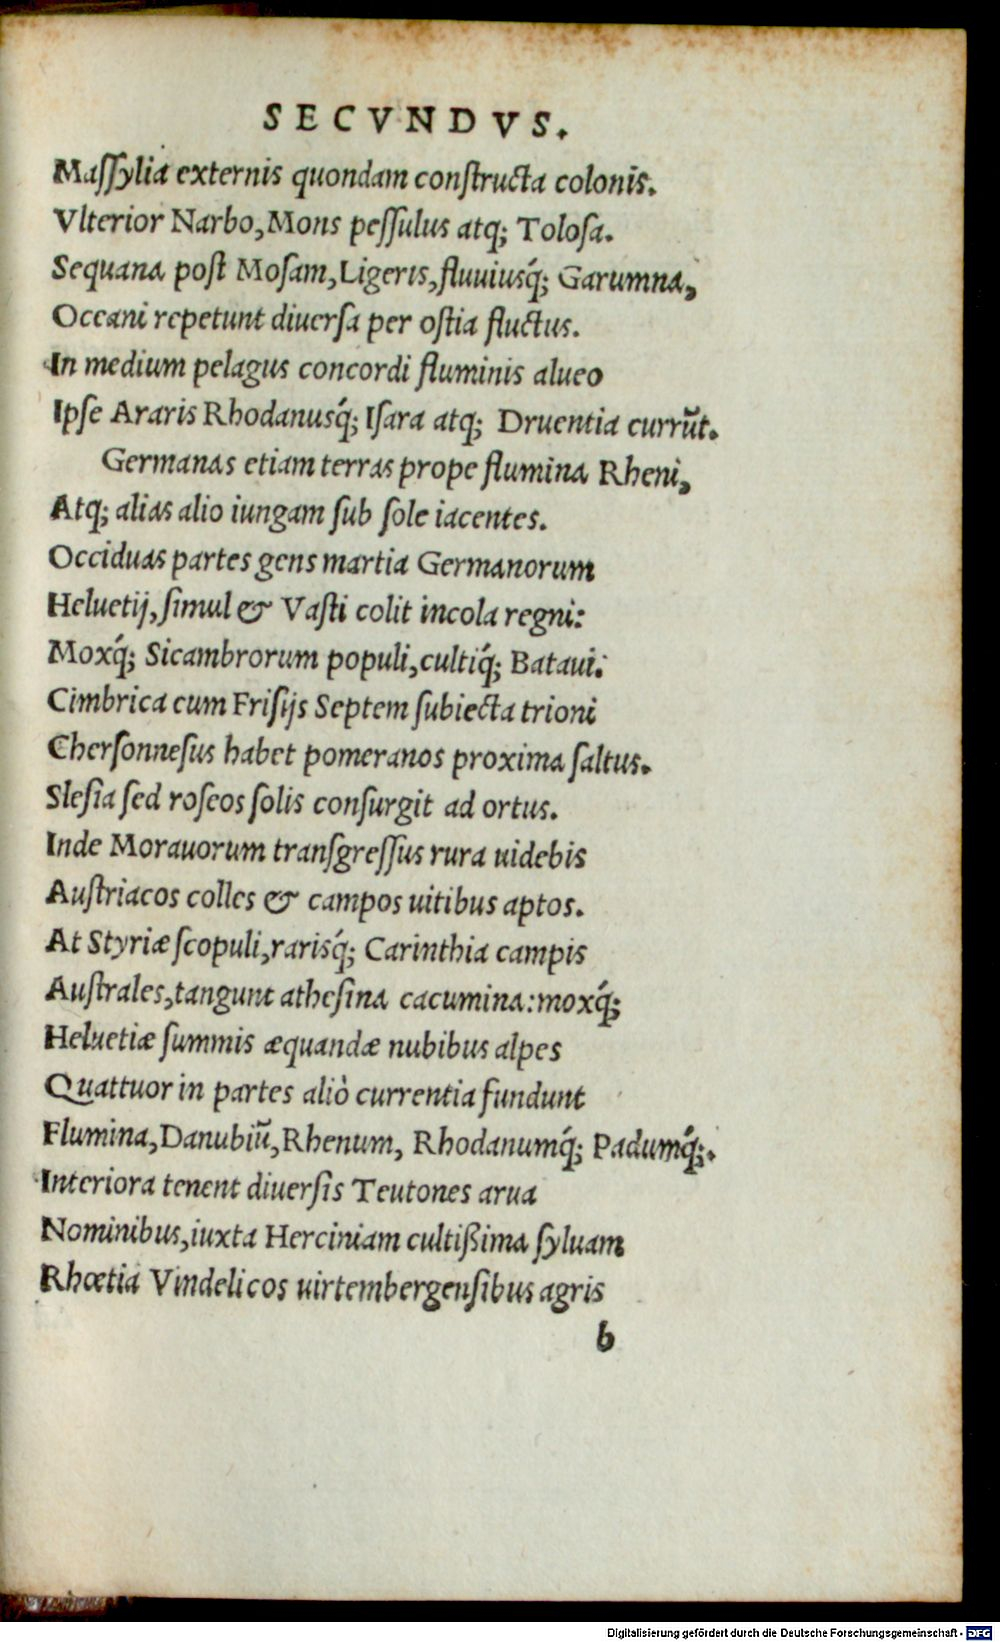 SECVNDVS.
Maſſylia externis quondam conſtructa colonis.
Vlterior Narbo,Mons peſſulus atq; Toloſa.
Sequana poſt Moſam,Ligeris,fluuiusq́; Garumna,
Oceani repetunt diuerſa per oſtia fluctus.
In medium pelagus concordi fluminis alueo
Ipſe Araris Rhodanusq́; Iſara atq; Druentia currūt.
Germanas etiam terras prope flumina Rheni,
Atq; alias alio iungam ſub ſole iacentes.
Occiduas partes gens martia Germanorum
Heluetij,ſimul & Vaſti colit incola regni:
Moxq́; Sicambrorum populi,cultiq́; Bataui.
Cimbrica cum Friſijs Septem ſubiecta trioni
Cherſonneſus habet pomeranos proxima ſaltus.
Sleſia ſed roſeos ſolis conſurgit ad ortus.
Inde Morauorum tranſgreſſus rura uidebis
Auſtriacos colles & campos uitibus aptos.
At Styriæ ſcopuli,rarisq́; Carinthia campis
Auſtrales,tangunt atheſina cacumina:moxq́;
Heluetiæ ſummis æquandæ nubibus alpes
Quattuor in partes aliò currentia fundunt
Flumina,Danubiū,Rhenum, Rhodanumq́; Padumq́;.
Interiora tenent diuerſis Teutones arua
Nominibus,iuxta Herciniam cultißima ſyluam
Rhœtia Vindelicos uirtembergenſibus agris
b
Digitalisierung gefördert durch die Deutsche Forschungsgemeinschaft - DFG